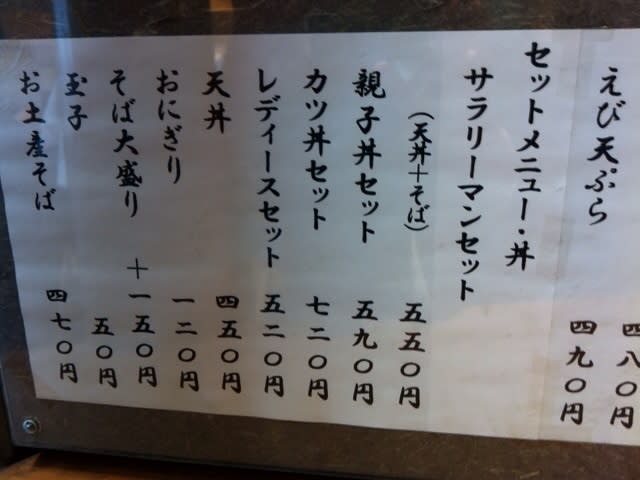 四八〇円
えび天ぷら 四九〇円
セットメニュー・丼
サラリーマンセット
(天丼+そば) 五五〇円
親子丼セット 五九〇円
カツ丼セット 七二〇円
レディースセット 五二〇円
天丼 四五〇円
おにぎり 一二〇円
そば大盛り +一五〇円
玉子 五〇円
お土産そば 四七〇円